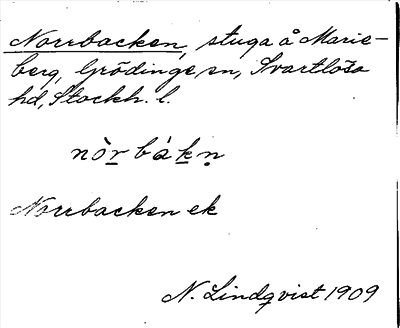 Norrbacken, stuga å Marie-
berg, Grödinge sn, Svartlösa
hd, Stockh. l.
nò̱r bàḵṇ
Norrbacken ek
N. Lindqvist 1909